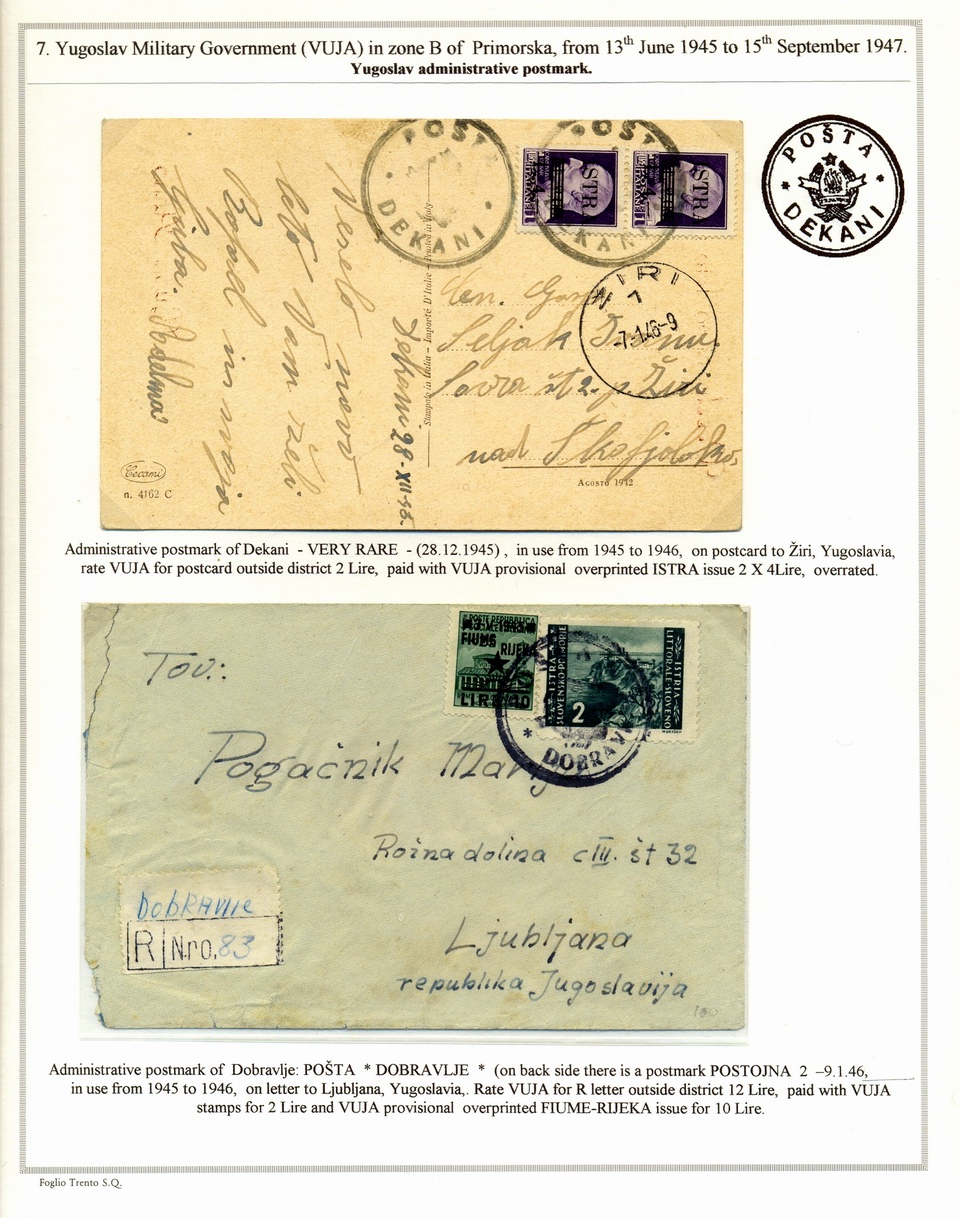 7. Yugoslav Military Government (VUJA) in zone B of Primorska, from 13th June 1945 to 15th September 1947.
Yugoslav administrative postmark.
POŠTA
DEKANI
POŠTA
DEKANI
POŠTA
DEKANI
ŽIRI
1
-7.1.46-9
Veselo novo
leto Vam želi
in
Dekani 28-XII-
Stampato in Italia - Importé D'Italie - Printed in Italy
Seljak
št 2. p. Žiri
nad Škofjoloko
Cecami
n. 4162 C
Agosto 1942
Administrative postmark of Dekani - VERY RARE - (28.12.1945) , in use from 1945 to 1946, on postcard to Žiri, Yugoslavia,
rate VUJA for postcard outside district 2 Lire, paid with VUJA provisional overprinted ISTRA issue 2 X 4Lire, overrated.
POSTE REPUBBLICA
FIUME
RIJEKA
LIRE 10
ISTRA
SLOVENSKO PRIMORJE
2
ISTRIA
LITTORALE SLOVENO
* DOBRAV
Tov.:
Pogačnik
Rožna dolina c III. št 32
Ljubljana
republika Jugoslavija
100
Dobravlje
R Nro. 83
Administrative postmark of Dobravlje: POŠTA * DOBRAVLJE * (on back side there is a postmark POSTOJNA 2 –9.1.46,
in use from 1945 to 1946, on letter to Ljubljana, Yugoslavia,. Rate VUJA for R letter outside district 12 Lire, paid with VUJA
stamps for 2 Lire and VUJA provisional overprinted FIUME-RIJEKA issue for 10 Lire.
Foglio Trento S.Q.